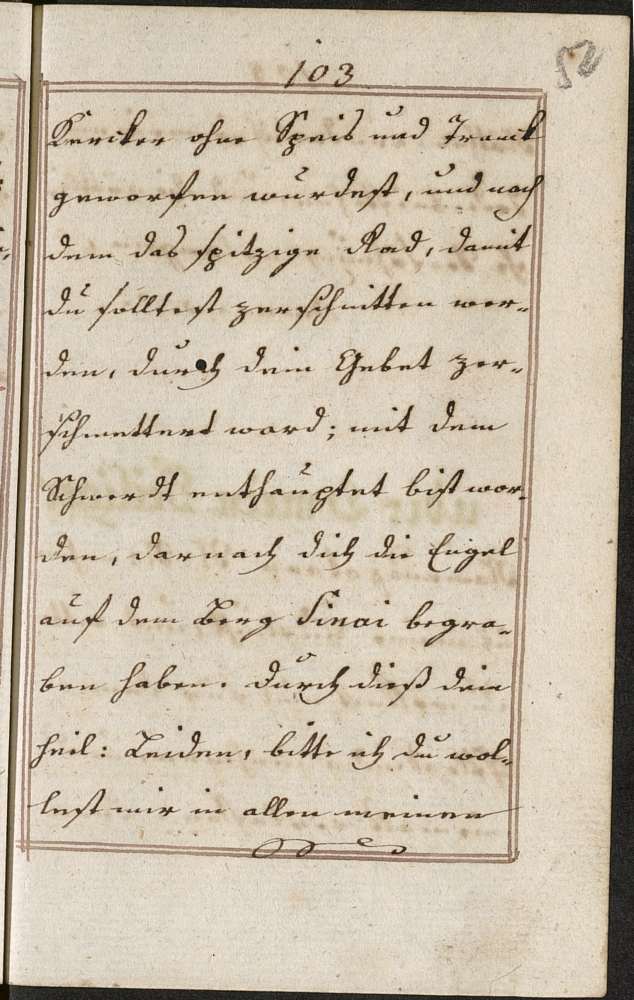 103
52
Kercker ohne Speis und Tranck
geworfen wurdest, und nach
dem das spitzige Rad, damit
du solltest zerschnitten wer-
den, durch dein Gebet zer-
schmettert ward; mit dem
Schwerdt enthauptet bist wor-
den, darnach dich die Engel
auf dem Berg Sinai begra-
ben haben. Durch dieß dein
heil: Leiden, bitte ich du wol-
lest mir in allen meinen